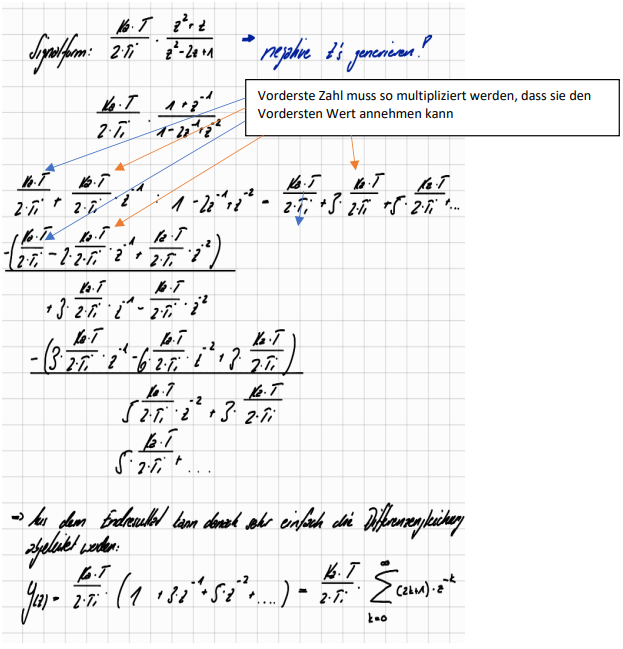 Signalform: K₀·T / 2·Tᵢ · z²+z / z²-2z+1 ⇒ negative z's generieren!
K₀·T / 2·Tᵢ · 1+z⁻¹ / 1-2z⁻¹+z⁻²
Vorderste Zahl muss so multipliziert werden, dass sie den
Vordersten Wert annehmen kann
K₀·T / 2·Tᵢ + K₀·T / 2·Tᵢ · z⁻¹ : 1-2z⁻¹+z⁻² = K₀·T / 2·Tᵢ + 3· K₀·T / 2·Tᵢ + 5· K₀·T / 2·Tᵢ +...
-( K₀·T / 2·Tᵢ - 2· K₀·T / 2·Tᵢ · z⁻¹ + K₀·T / 2·Tᵢ · z⁻² )
+3· K₀·T / 2·Tᵢ · z⁻¹ - K₀·T / 2·Tᵢ · z⁻²
-( 3· K₀·T / 2·Tᵢ · z⁻¹ - 6 K₀·T / 2·Tᵢ · z⁻² + 3· K₀·T / 2·Tᵢ )
5 K₀·T / 2·Tᵢ · z⁻² + 3· K₀·T / 2·Tᵢ
5· K₀·T / 2·Tᵢ + ....
⇒ Aus dem Endresultat kann danach sehr einfach die Differenzengleichung
abgeleitet werden:
y(z) = K₀·T / 2·Tᵢ · ( 1 + 3·z⁻¹ + 5·z⁻² + .... ) = K₀·T / 2·Tᵢ · ∞ ∑ k=0 (2k+1)·z⁻ᵏ